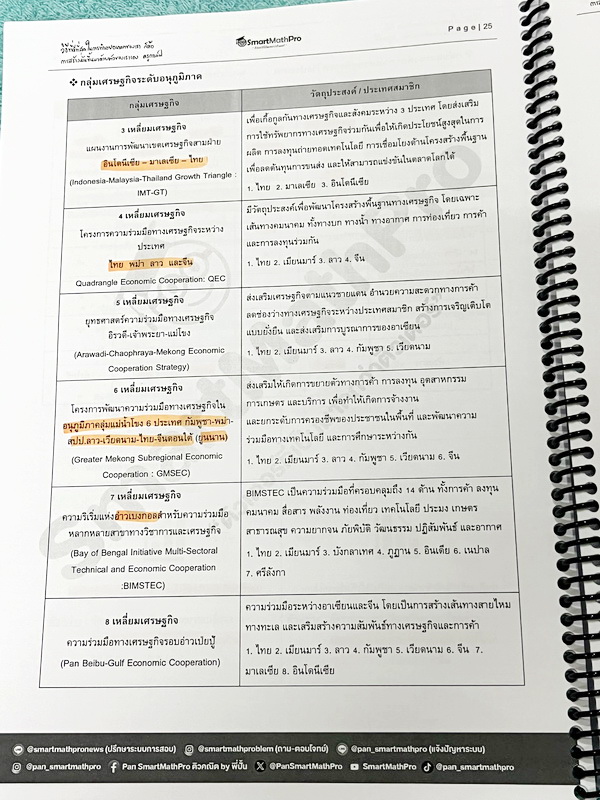 SmartMathPro
Page | 25
❖ กลุ่มเศรษฐกิจระดับอนุภูมิภาค
กลุ่มเศรษฐกิจ
วัตถุประสงค์ / ประเทศสมาชิก
3 เหลี่ยมเศรษฐกิจ
แผนงานการพัฒนาเขตเศรษฐกิจสามฝ่าย
อินโดนีเซีย – มาเลเซีย – ไทย
(Indonesia-Malaysia-Thailand Growth Triangle :
IMT-GT)
เพื่อเกื้อกูลกันทางเศรษฐกิจและสังคมระหว่าง 3 ประเทศ โดยส่งเสริม
การใช้ทรัพยากรทางเศรษฐกิจร่วมกันเพื่อให้เกิดประโยชน์สูงสุดในการ
ผลิต การลงทุนถ่ายทอดเทคโนโลยี การเชื่อมโยงด้านโครงสร้างพื้นฐาน
เพื่อลดต้นทุนการขนส่ง และให้สามารถแข่งขันในตลาดโลกได้
1. ไทย 2. มาเลเซีย 3. อินโดนีเซีย
4 เหลี่ยมเศรษฐกิจ
โครงการความร่วมมือทางเศรษฐกิจระหว่าง
ประเทศ
ไทย พม่า ลาว และจีน
Quadrangle Economic Cooperation: QEC
มีวัตถุประสงค์เพื่อพัฒนาโครงสร้างพื้นฐานทางเศรษฐกิจ โดยเฉพาะ
เส้นทางคมนาคม ทั้งทางบก ทางน้ำ ทางอากาศ การท่องเที่ยว การค้า
และการลงทุนร่วมกัน
1. ไทย 2. เมียนมาร์ 3. ลาว 4. จีน
5 เหลี่ยมเศรษฐกิจ
ยุทธศาสตร์ความร่วมมือทางเศรษฐกิจ
อิรวดี-เจ้าพระยา-แม่โขง
(Arawadi-Chaophraya-Mekong Economic
Cooperation Strategy)
ส่งเสริมเศรษฐกิจตามแนวชายแดน อำนวยความสะดวกทางการค้า
ลดช่องว่างทางเศรษฐกิจระหว่างประเทศสมาชิก สร้างการเจริญเติบโต
แบบยั่งยืน และส่งเสริมการบูรณาการของอาเซียน
1. ไทย 2. เมียนมาร์ 3. ลาว 4. กัมพูชา 5. เวียดนาม
6 เหลี่ยมเศรษฐกิจ
โครงการพัฒนาความร่วมมือทางเศรษฐกิจใน
อนุภูมิภาคลุ่มแม่น้ำโขง 6 ประเทศ กัมพูชา-พม่า-
สปป.ลาว-เวียดนาม-ไทย-จีนตอนใต้ (ยูนนาน)
(Greater Mekong Subregional Economic
Cooperation : GMSEC)
ส่งเสริมให้เกิดการขยายตัวทางการค้า การลงทุน อุตสาหกรรม
การเกษตร และบริการ เพื่อทำให้เกิดการจ้างงาน
และยกระดับการครองชีพของประชาชนในพื้นที่ และพัฒนาความ
ร่วมมือทางเทคโนโลยี และการศึกษาระหว่างกัน
1. ไทย 2. เมียนมาร์ 3. ลาว 4. กัมพูชา 5. เวียดนาม 6. จีน
7 เหลี่ยมเศรษฐกิจ
ความริเริ่มแห่งอ่าวเบงกอลสำหรับความร่วมมือ
หลากหลายสาขาทางวิชาการและเศรษฐกิจ
(Bay of Bengal Initiative Multi-Sectoral
Technical and Economic Cooperation
:BIMSTEC)
BIMSTEC เป็นความร่วมมือที่ครอบคลุมถึง 14 ด้าน ทั้งการค้า ลงทุน
คมนาคม สื่อสาร พลังงาน ท่องเที่ยว เทคโนโลยี ประมง เกษตร
สาธารณสุข ความยากจน ภัยพิบัติ วัฒนธรรม ปฏิสัมพันธ์ และอากาศ
1. ไทย 2. เมียนมาร์ 3. บังกลาเทศ 4. ภูฏาน 5. อินเดีย 6. เนปาล
7. ศรีลังกา
8 เหลี่ยมเศรษฐกิจ
ความร่วมมือทางเศรษฐกิจรอบอ่าวเป่ยปู้
(Pan Beibu-Gulf Economic Cooperation)
ความร่วมมือระหว่างอาเซียนและจีน โดยเป็นการสร้างเส้นทางสายไหม
ทางทะเล และเสริมสร้างความสัมพันธ์ทางเศรษฐกิจและการค้า
1. ไทย 2. เมียนมาร์ 3. ลาว 4. กัมพูชา 5. เวียดนาม 6. จีน 7.
มาเลเซีย 8. อินโดนีเซีย
@smartmathpronews (ปรึกษาระบบการสอบ) @smartmathproblem (ถาม-ตอบโจทย์) @pan_smartmathpro (แจ้งปัญหาระบบ)
@pan_smartmathpro Pan SmartMathPro ติวคณิต by พี่ปั้น @PanSmartMathPro SmartMathPro @pan_smartmathpro